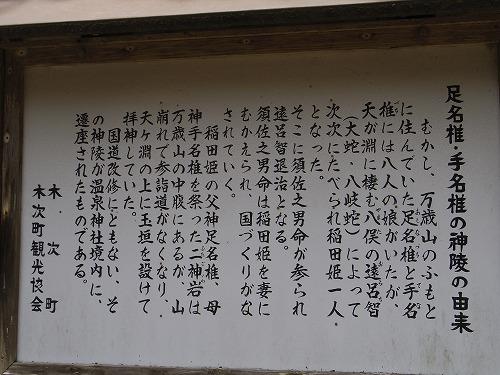 足名椎・手名椎の神陵の由来
むかし、万歳山のふもと
に住んでいた足名椎と手名
椎には八人の娘がいたが、
天が淵に棲む八俣の遠呂智
（大蛇・八岐蛇）によって
次次にたべられ稲田姫一人
となった。
そこに須佐之男命が参られ
遠呂智退治となる。
須佐之男命は稲田姫を妻に
むかえられ、国づくりがな
されていく。
稲田姫の父神足名椎、母
神手名椎を祭った二神岩は
万歳山の中腹にあるが、山
崩れで参詣道がなくなり、
天ヶ淵の上に玉垣を設けて
拝神していた。
国道改修にともない、そ
の神陵が温泉神社境内に、
遷座されたものである。
木次町
木次町観光協会